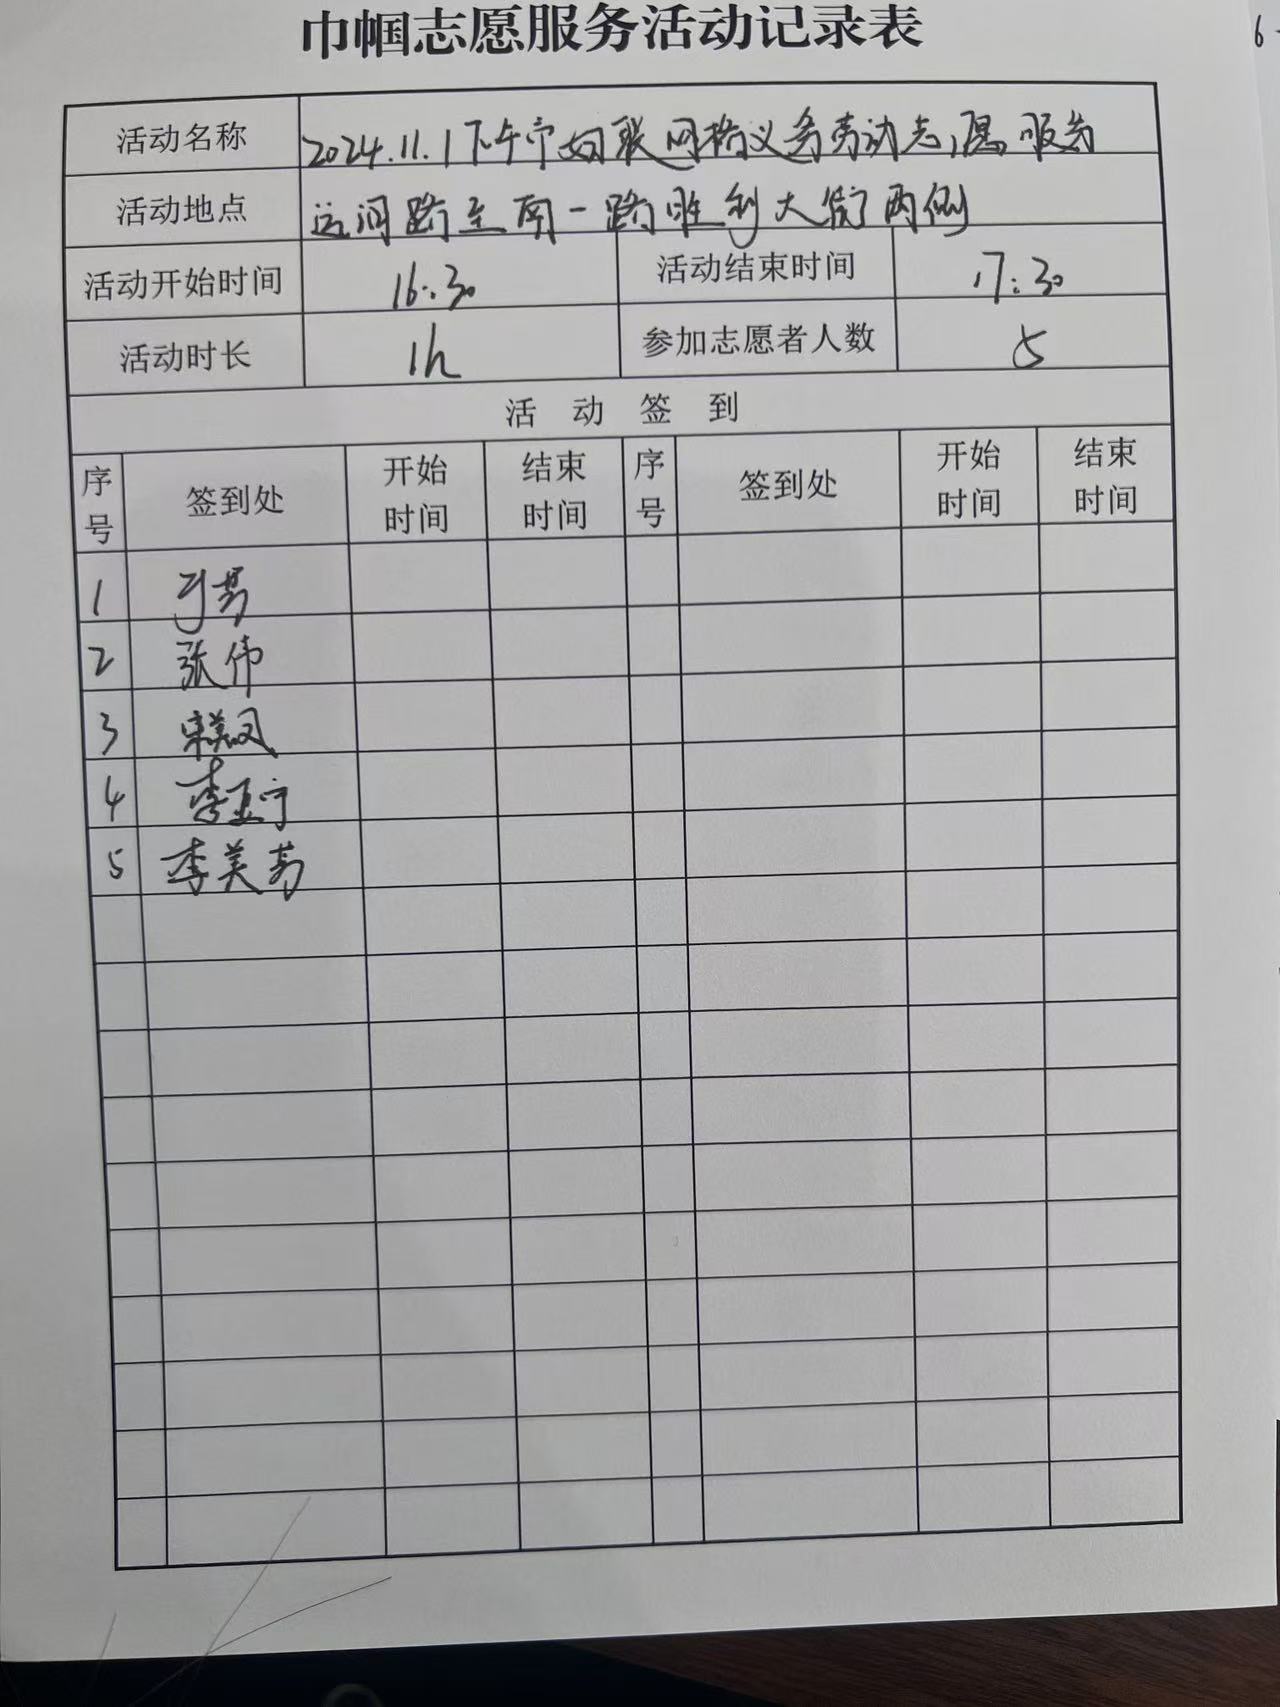 巾帼志愿服务活动记录表
6
活动名称 2024.11.1下午市妇联网格义务劳动志愿服务
活动地点 运河路至南一路胜利大街两侧
活动开始时间 16:30 活动结束时间 17:30
活动时长 1h 参加志愿者人数 5
活动签到
序号 签到处 开始时间 结束时间 序号 签到处 开始时间 结束时间
1 于
2 张伟
3 宋美凤
4 李亚宁
5 李美